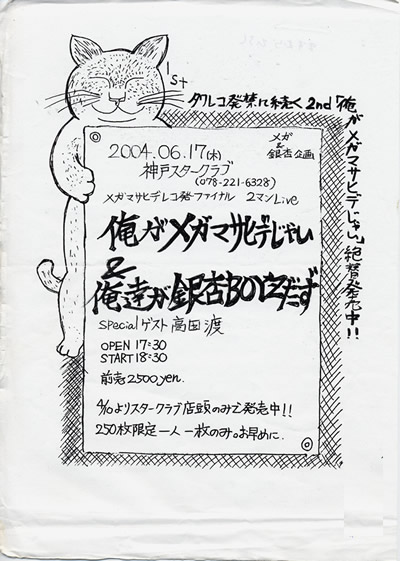 1st タワレコ発禁に続く2nd「俺がメガマサヒデじゃい」絶賛発売中!!
メガ
&
銀杏企画
2004.06.17(木)
神戸スタークラブ
(078-221-6328)
メガマサヒデレコ発ファイナル 2マンLive
俺がメガマサヒデじゃい
&
俺達が銀杏BOYZだず
specialゲスト 高田渡
OPEN 17:30
START 18:30
前売2500yen.
4/10よりスタークラブ店頭のみで発売中!!
250枚限定一人一枚のみ。お早めに.